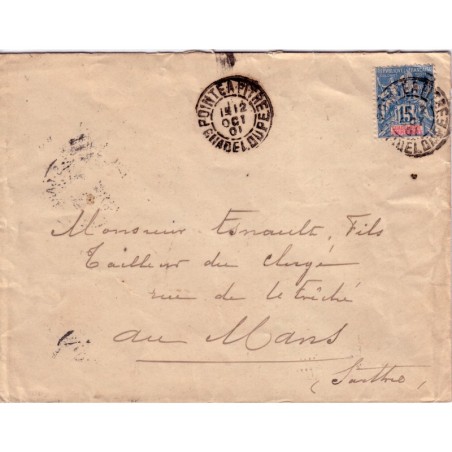 POINTE A PITRE
1E 12
OCT
01
GUADELOUPE
REPUBLIQUE FRANCAISE
15
Monsieur Esnault, Fils
Tailleur du clergé
rue de l'Evêché
au Mans
(Sarthe)